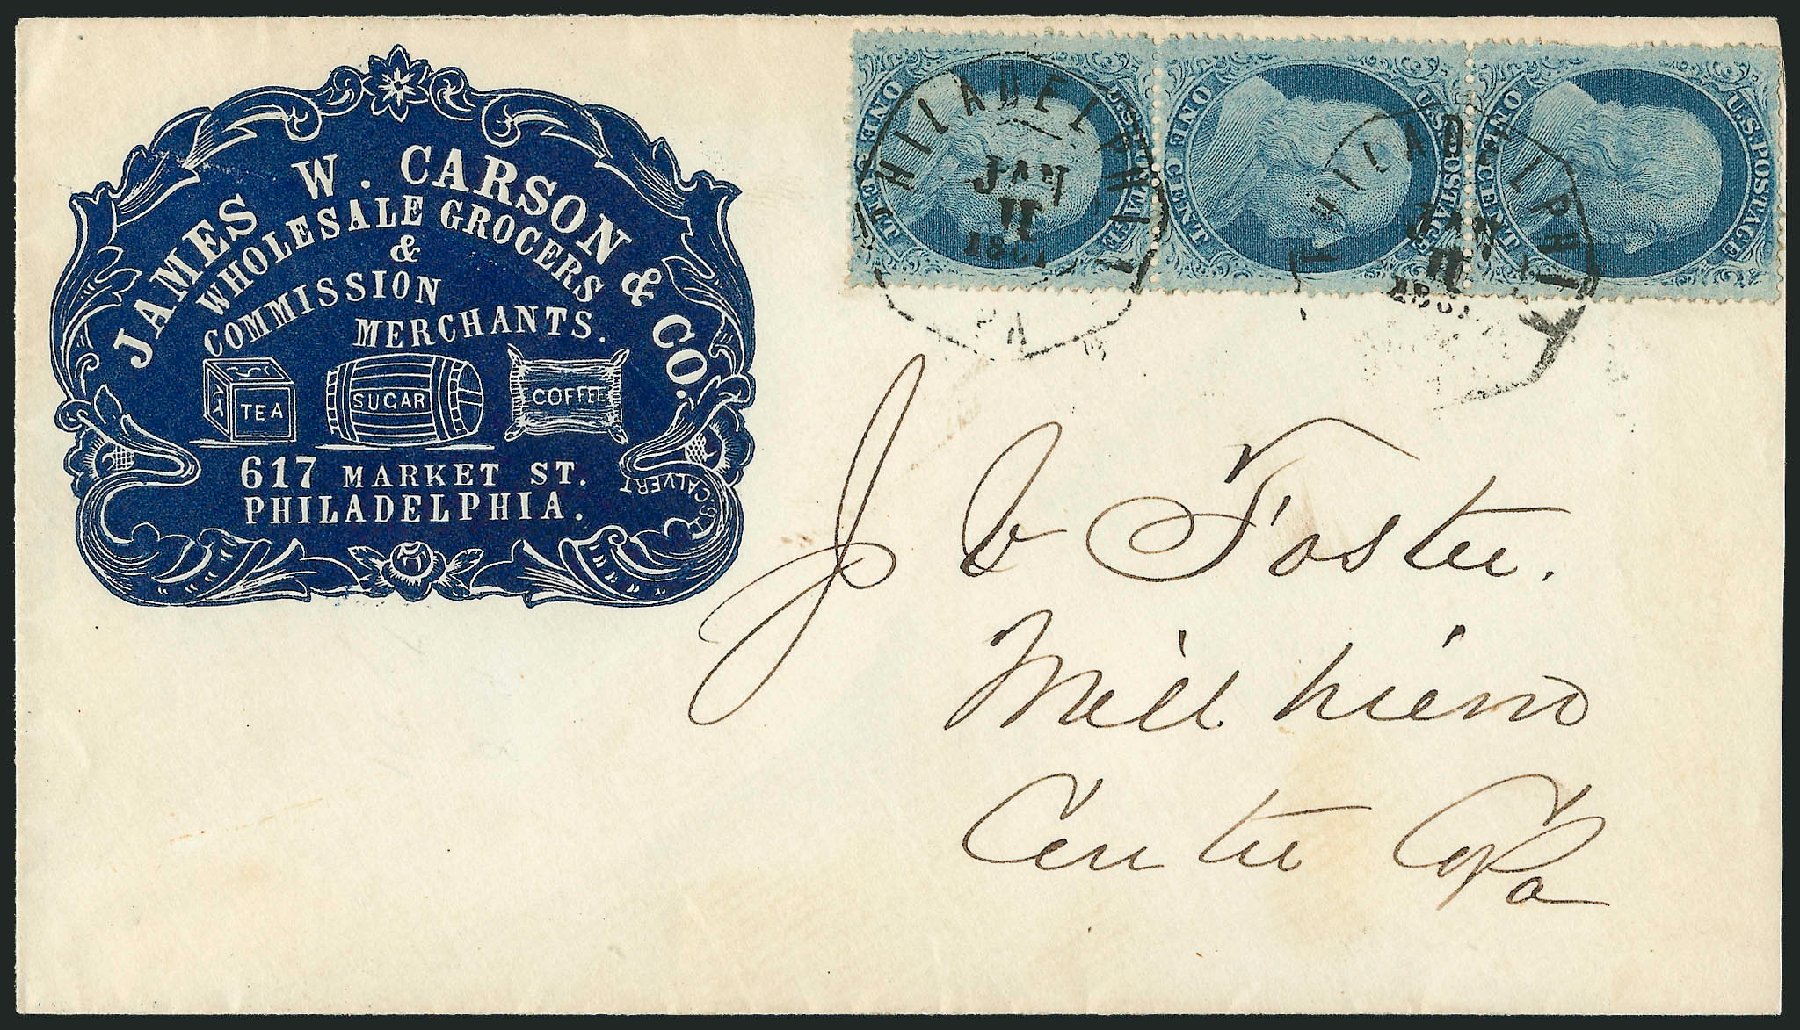 JAMES W. CARSON & CO.
WHOLESALE GROCERS
&
COMMISSION
MERCHANTS.
TEA
SUCAR
COFFEE
617 MARKET ST.
PHILADELPHIA.
CALVERT
U.S. POSTAGE
ONE CENT
U.S. POSTAGE
ONE CENT
U.S. POSTAGE
ONE CENT
PHILADELPHIA
JAN
11
1861
PA
PHILADELPHIA
JAN
11
1861
J V Foster.
Mill hiem
Centre Co Pa